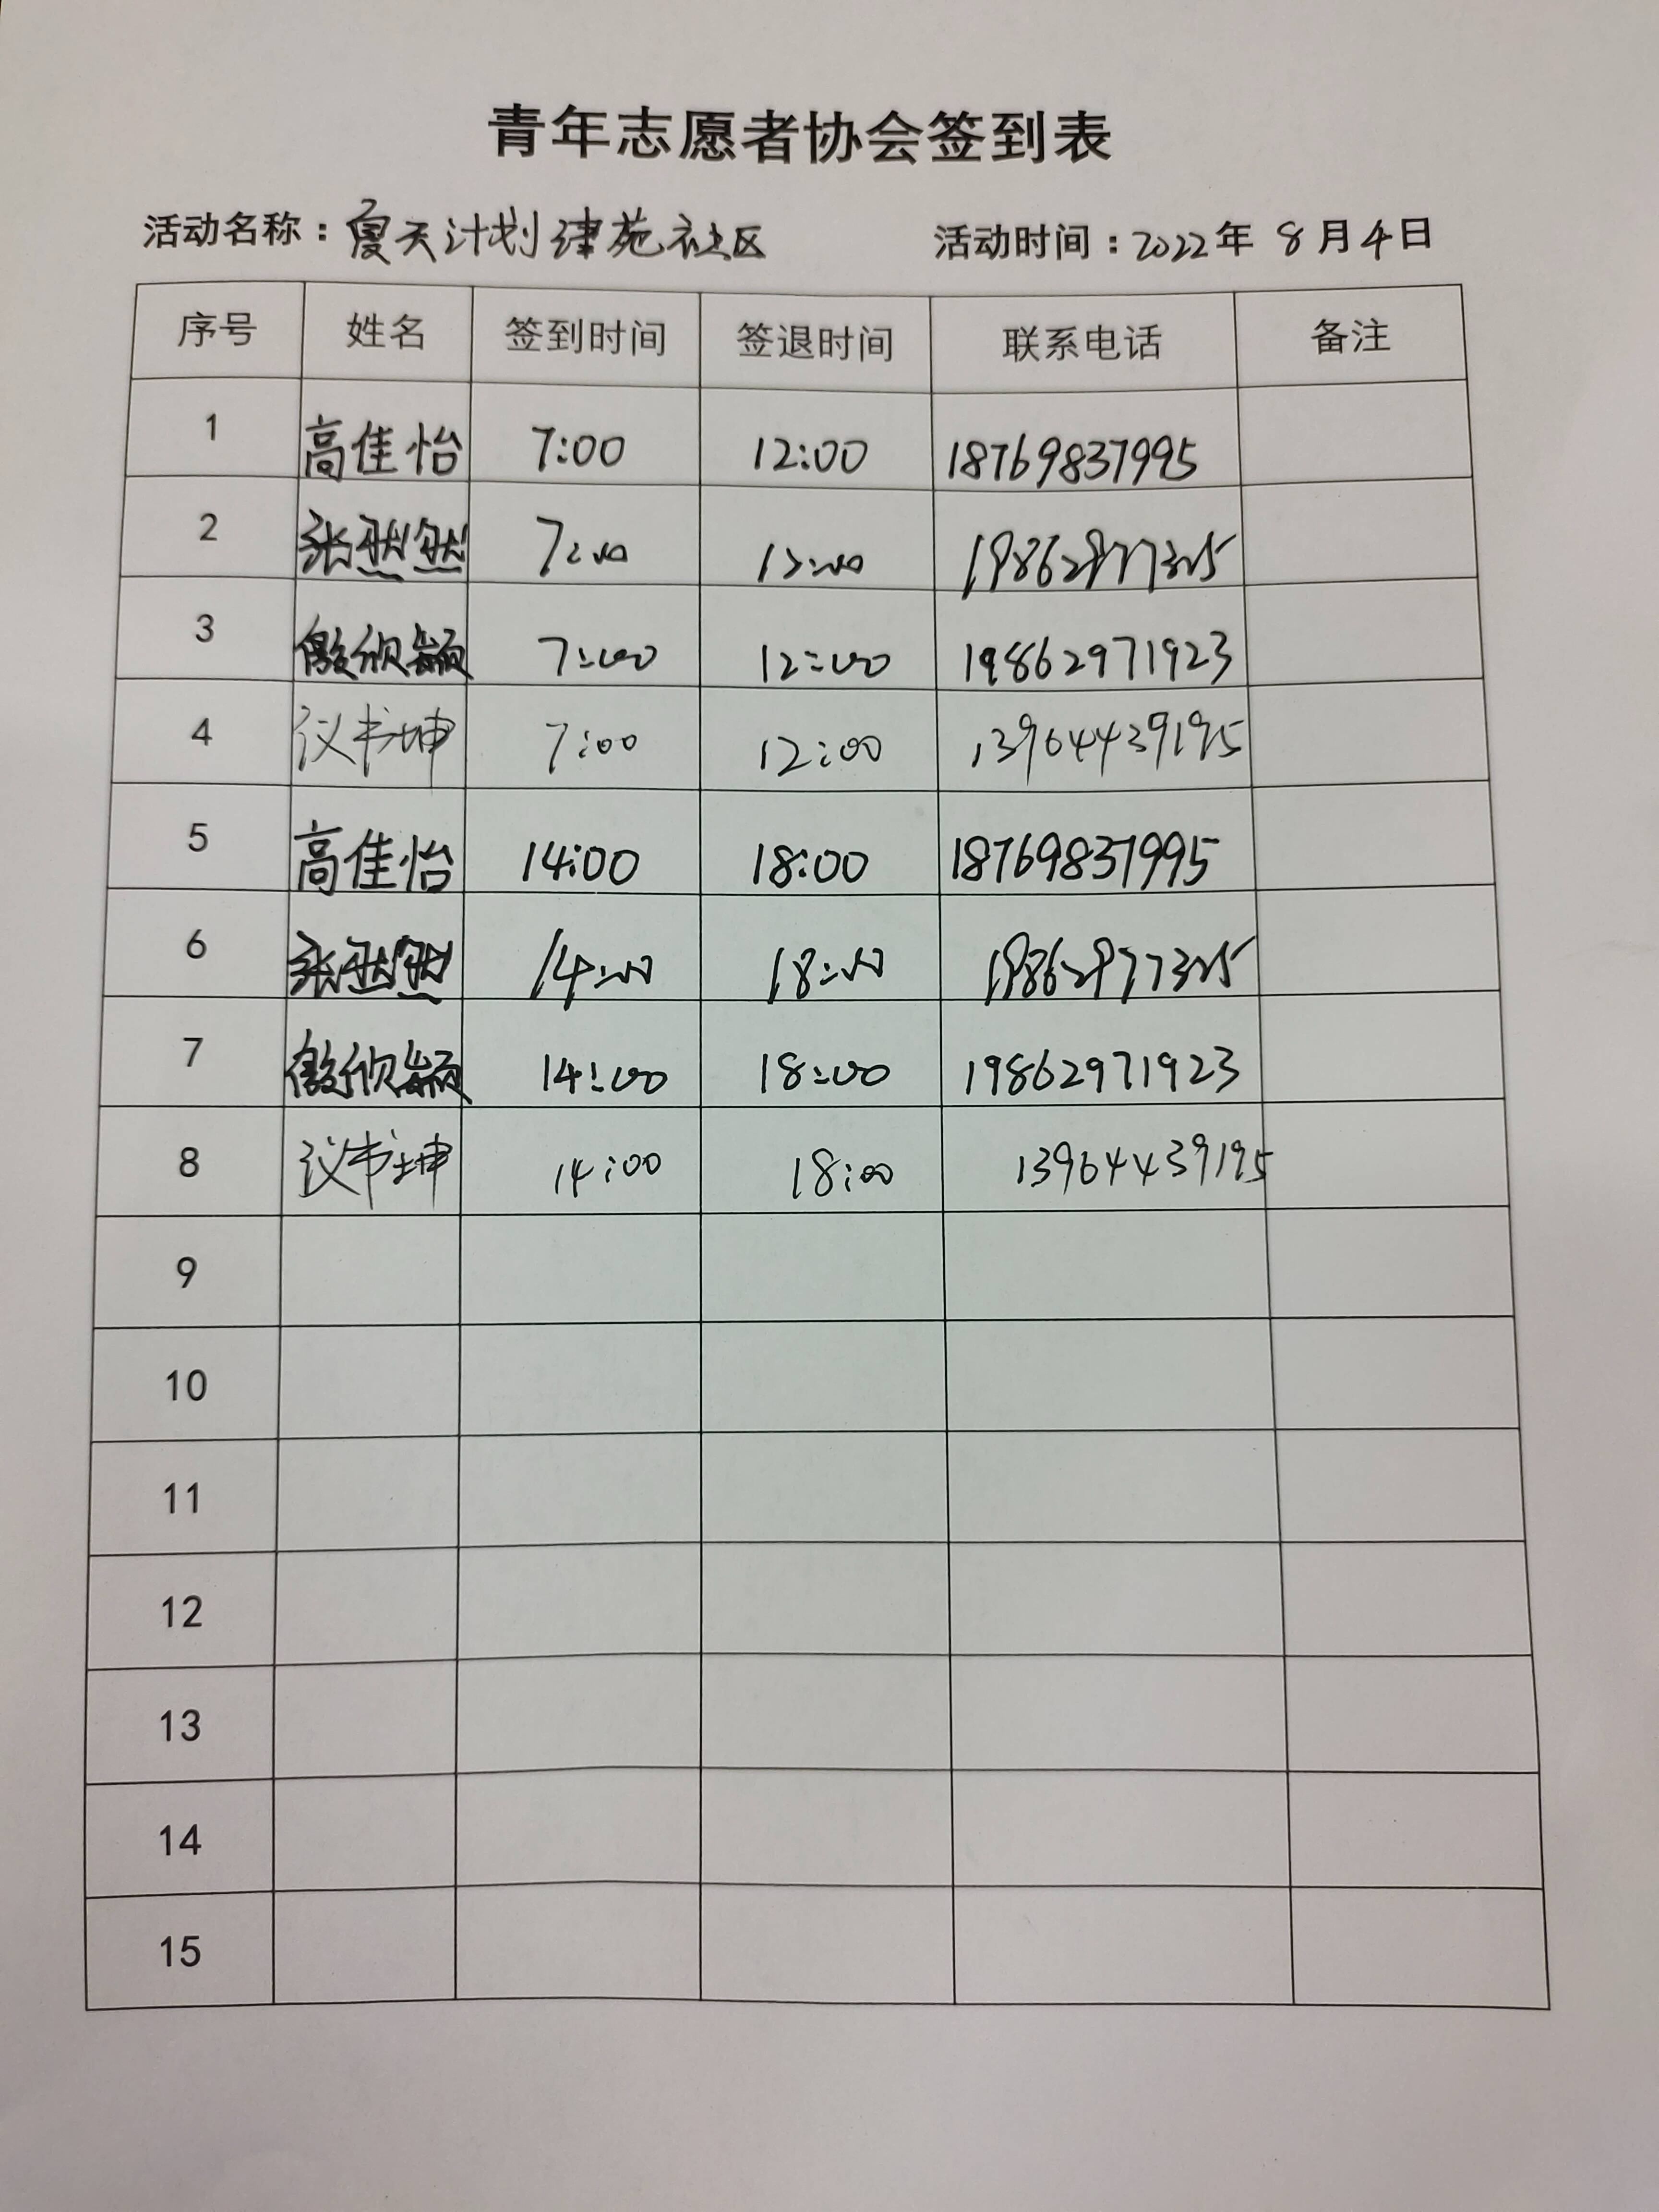 青年志愿者协会签到表
活动名称：夏天计划律苑社区 活动时间：2022年 8月4日
序号 姓名 签到时间 签退时间 联系电话 备注
1 高佳怡 7:00 12:00 18769837995
2 张然然 7:00 12:00 19862977325
3 傲欣颖 7:00 12:00 19862971923
4 仪书坤 7:00 12:00 13964439195
5 高佳怡 14:00 18:00 18769837995
6 张然然 14:00 18:00 19862977325
7 傲欣颖 14:00 18:00 19862971923
8 仪书坤 14:00 18:00 13964439195
9
10
11
12
13
14
15